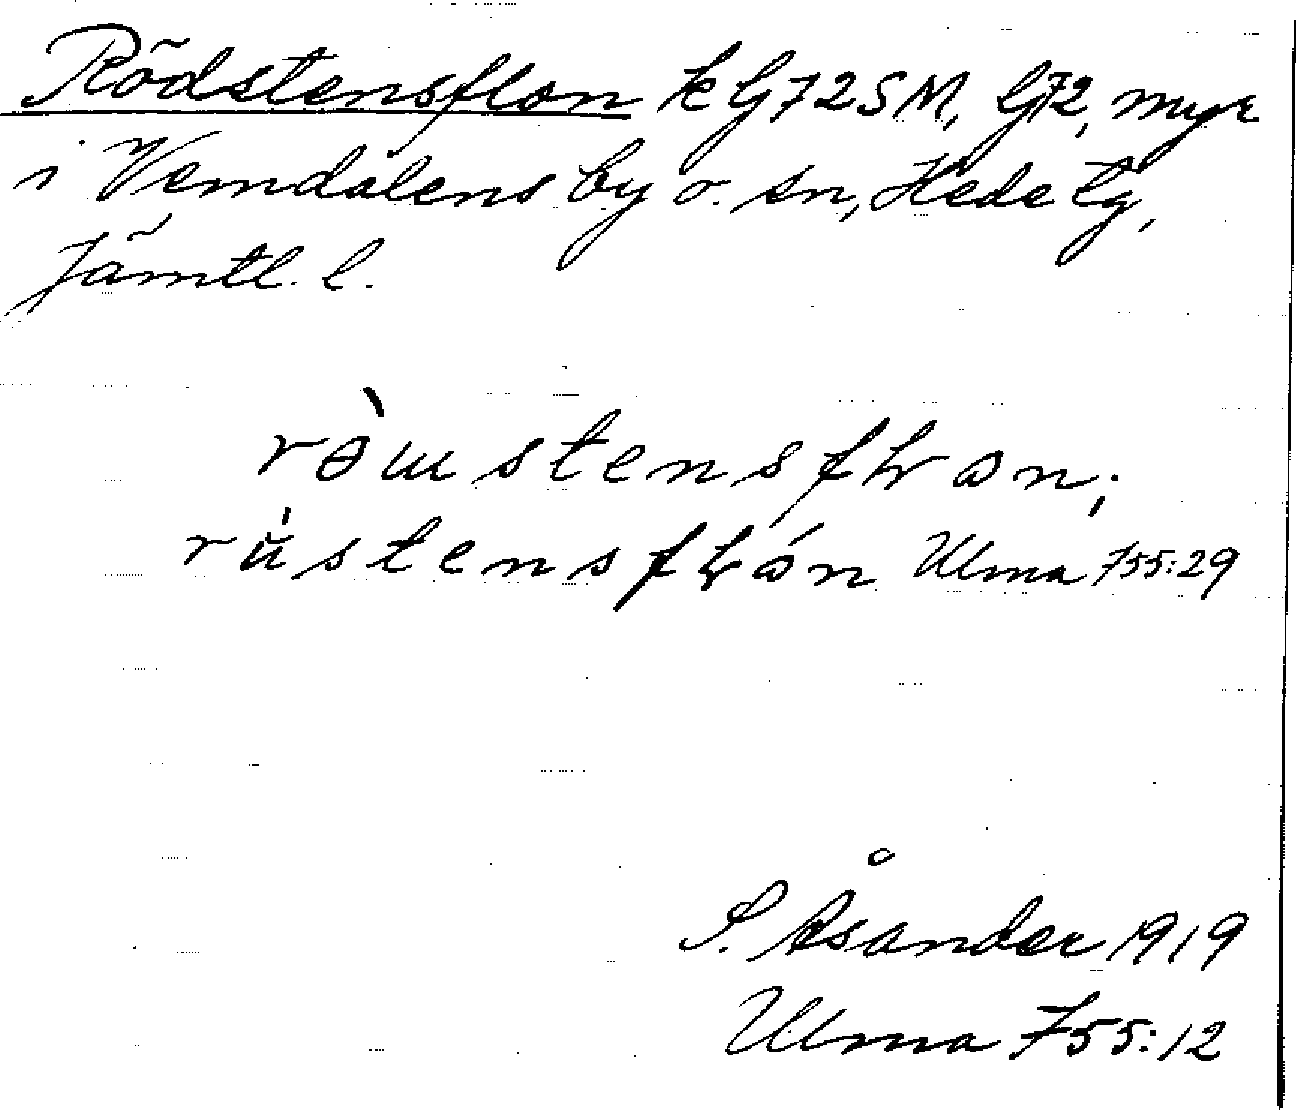 Rödstensflon k G72SM, G72, myr
i Vemdalens by o. sn, Hede tg,
Jämtl. l.
stensflon;
stensflón Ulma 755:29
S. Åsander 1919
Ulma 755:12